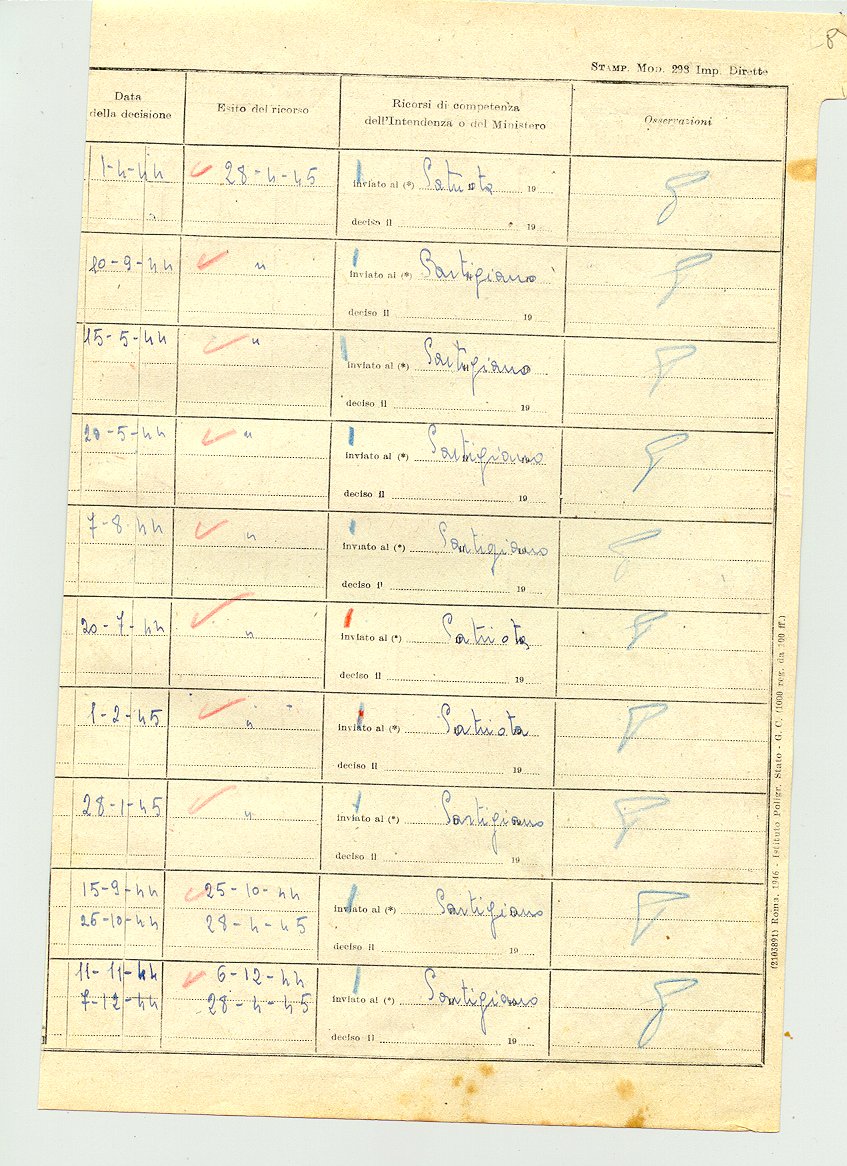 8
STAMP. MOD. 298 Imp. Dirette
Data della decisione
Esito del ricorso
Ricorsi di competenza dell'Intendenza o del Ministero
Osservazioni
1-4-44 28-4-45 inviato al (*) Patriota 19
" deciso il 19
20-9-44 " inviato al (*) Partigiano
deciso il 19
15-5-44 " inviato al (*) Partigiano
deciso il 19
20-5-44 " inviato al (*) Partigiano 19
deciso il 19
7-8-44 " inviato al (*) Partigiano
deciso il 19
20-7-44 " inviato al (*) Patriota
deciso il 19
1-2-45 " inviato al (*) Patriota
deciso il 19
28-1-45 " inviato al (*) Partigiano
deciso il 19
15-9-44 25-10-44 inviato al (*) Partigiano
26-10-44 28-4-45
deciso il 19
11-11-44 6-12-44 inviato al (*) Partigiano
7-12-44 28-4-45
deciso il 19
(2103891) Roma, 1946 - Istituto Poligr. Stato - G. C. (1000 reg. da 100 ff.)